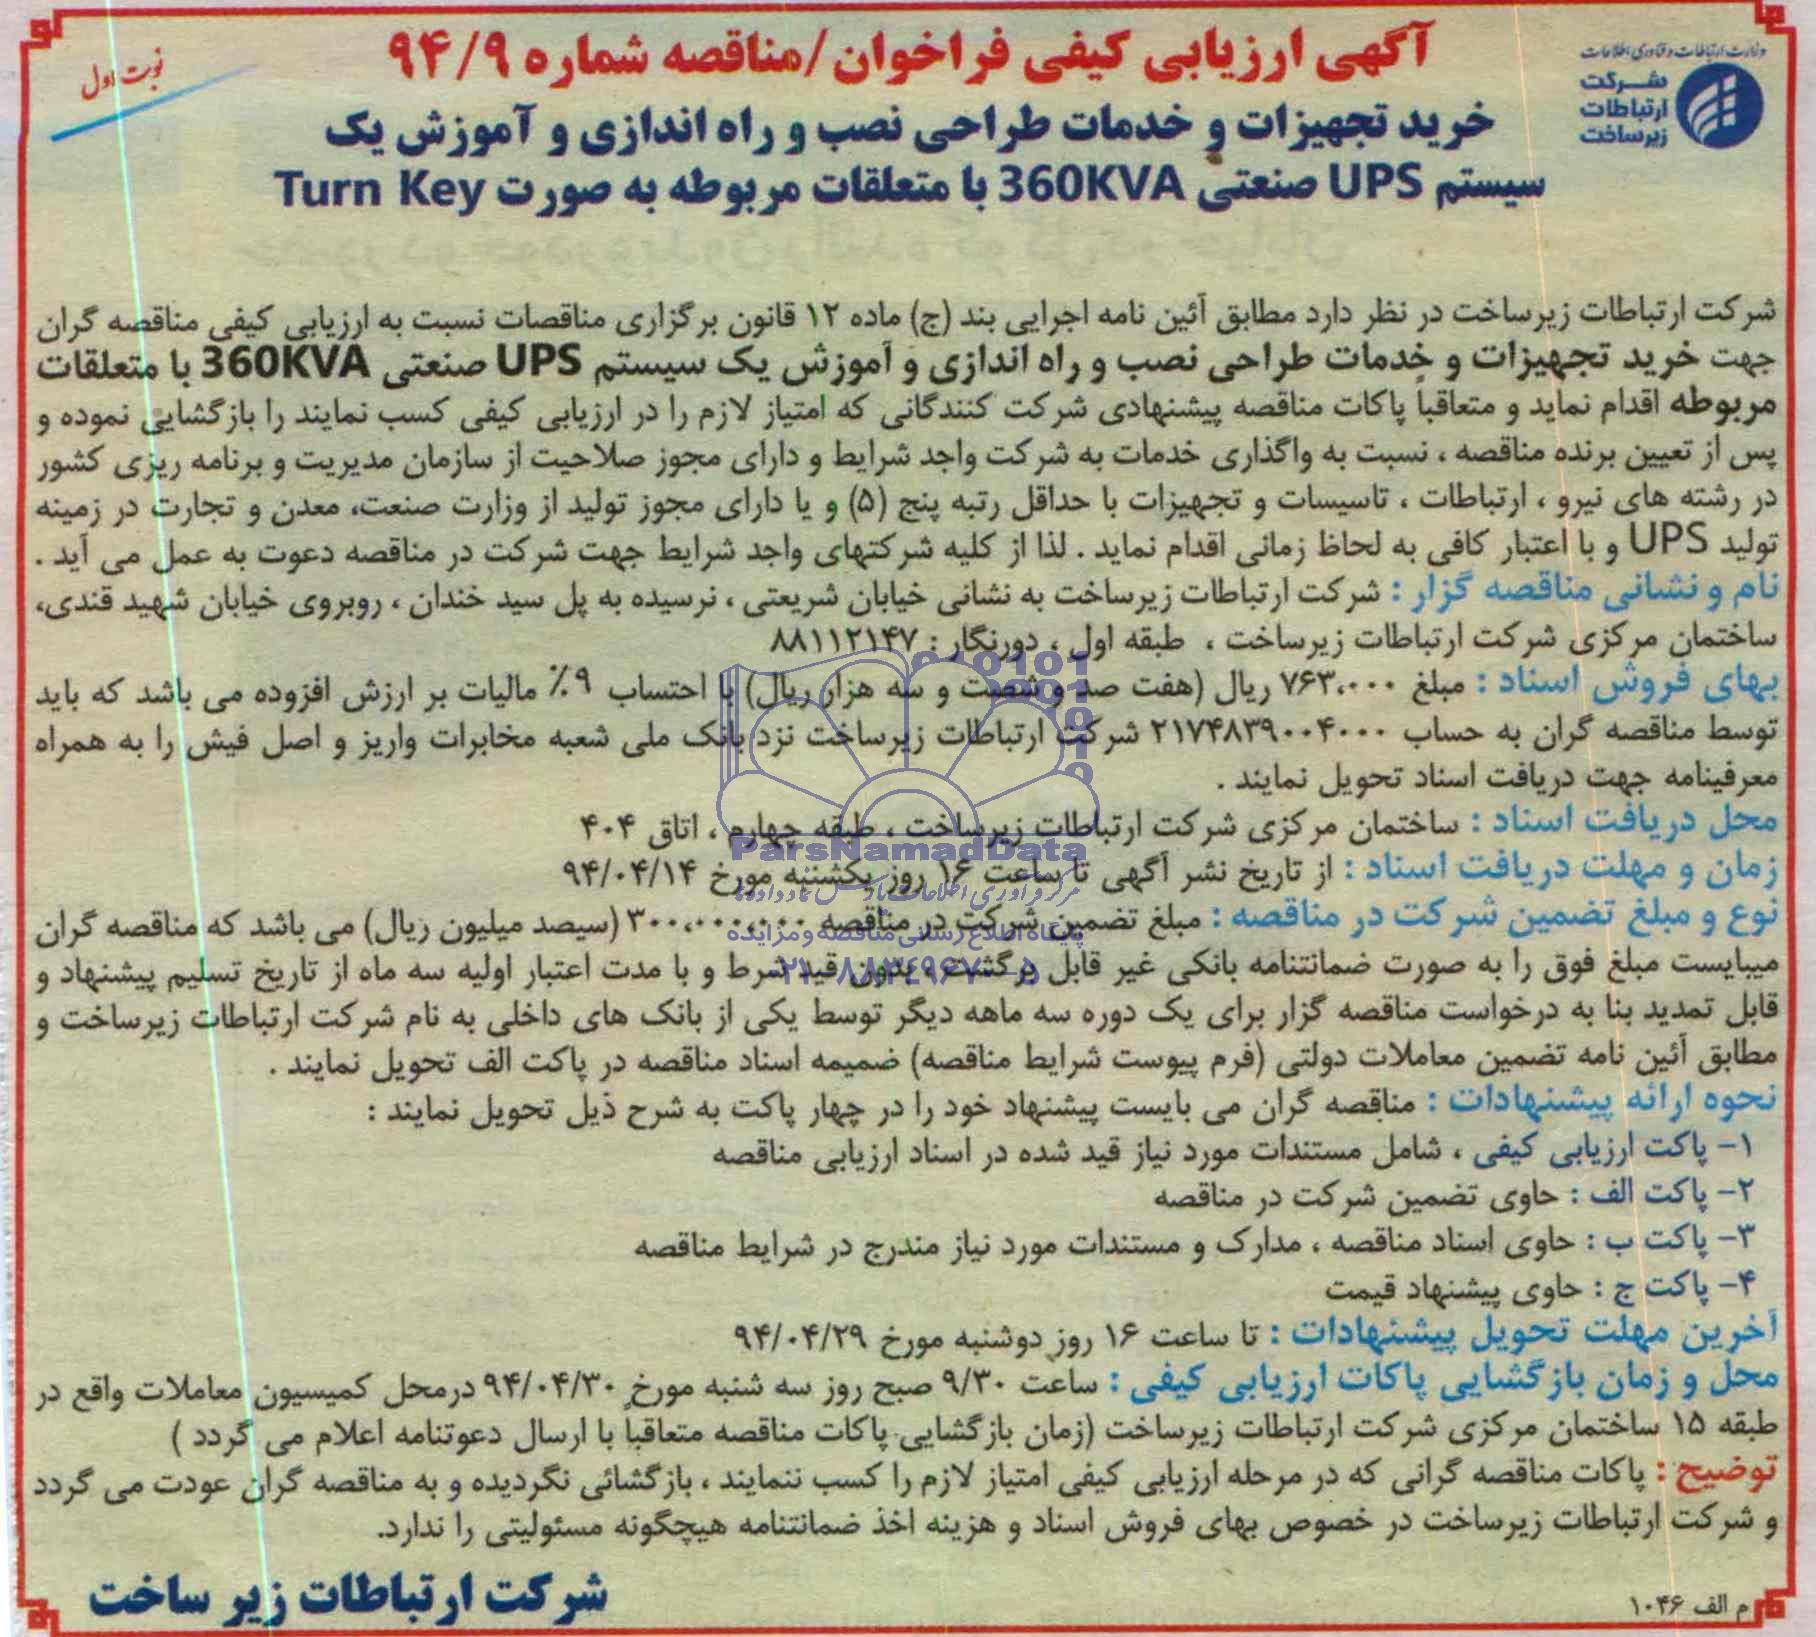 وزارت ارتباطات و فناوری اطلاعات
شرکت
ارتباطات
زیرساخت
نوبت اول
آگهی ارزیابی کیفی فراخوان/مناقصه شماره ۹۴/۹
خرید تجهیزات و خدمات طراحی نصب و راه اندازی و آموزش یک
سیستم UPS صنعتی 360KVA با متعلقات مربوطه به صورت Turn Key
شرکت ارتباطات زیرساخت در نظر دارد مطابق آئین نامه اجرایی بند (ج) ماده ۱۲ قانون برگزاری مناقصات نسبت به ارزیابی کیفی مناقصه گران
جهت خرید تجهیزات و خدمات طراحی نصب و راه اندازی و آموزش یک سیستم UPS صنعتی 360KVA با متعلقات
مربوطه اقدام نماید و متعاقباً پاکات مناقصه پیشنهادی شرکت کنندگانی که امتیاز لازم را در ارزیابی کیفی کسب نمایند را بازگشایی نموده و
پس از تعیین برنده مناقصه ، نسبت به واگذاری خدمات به شرکت واجد شرایط و دارای مجوز صلاحیت از سازمان مدیریت و برنامه ریزی کشور
در رشته های نیرو ، ارتباطات ، تاسیسات و تجهیزات با حداقل رتبه پنج (۵) و یا دارای مجوز تولید از وزارت صنعت، معدن و تجارت در زمینه
تولید UPS و با اعتبار کافی به لحاظ زمانی اقدام نماید . لذا از کلیه شرکتهای واجد شرایط جهت شرکت در مناقصه دعوت به عمل می آید .
نام و نشانی مناقصه گزار : شرکت ارتباطات زیرساخت به نشانی خیابان شریعتی ، نرسیده به پل سید خندان ، روبروی خیابان شهید قندی،
ساختمان مرکزی شرکت ارتباطات زیرساخت ، طبقه اول ، دورنگار : ۸۸۱۱۲۱۴۷
بهای فروش اسناد : مبلغ ۷۶۳،۰۰۰ ریال (هفت صد و شصت و سه هزار ریال) با احتساب ۹٪ مالیات بر ارزش افزوده می باشد که باید
توسط مناقصه گران به حساب ۲۱۷۴۸۳۹۰۰۴۰۰۰ شرکت ارتباطات زیرساخت نزد بانک ملی شعبه مخابرات واریز و اصل فیش را به همراه
معرفینامه جهت دریافت اسناد تحویل نمایند .
محل دریافت اسناد : ساختمان مرکزی شرکت ارتباطات زیرساخت ، طبقه چهارم ، اتاق ۴۰۴
ParsNamadData
زمان و مهلت دریافت اسناد : از تاریخ نشر آگهی تا ساعت ۱۶ روز یکشنبه مورخ ۹۴/۰۴/۱۴
نوع و مبلغ تضمین شرکت در مناقصه : مبلغ تضمین شرکت در مناقصه ۳۰۰،۰۰۰،۰۰۰ (سیصد میلیون ریال) می باشد که مناقصه گران
پایگاه اطلاع رسانی مناقصه و مزایده
میبایست مبلغ فوق را به صورت ضمانتنامه بانکی غیر قابل برگشت ، بدون قید شرط و با مدت اعتبار اولیه سه ماه از تاریخ تسلیم پیشنهاد و
قابل تمدید بنا به درخواست مناقصه گزار برای یک دوره سه ماهه دیگر توسط یکی از بانک های داخلی به نام شرکت ارتباطات زیرساخت و
مطابق آئین نامه تضمین معاملات دولتی (فرم پیوست شرایط مناقصه) ضمیمه اسناد مناقصه در پاکت الف تحویل نمایند .
نحوه ارائه پیشنهادات : مناقصه گران می بایست پیشنهاد خود را در چهار پاکت به شرح ذیل تحویل نمایند :
۱- پاکت ارزیابی کیفی ، شامل مستندات مورد نیاز قید شده در اسناد ارزیابی مناقصه
۲- پاکت الف : حاوی تضمین شرکت در مناقصه
۳- پاکت ب : حاوی اسناد مناقصه ، مدارک و مستندات مورد نیاز مندرج در شرایط مناقصه
۴- پاکت ج : حاوی پیشنهاد قیمت
آخرین مهلت تحویل پیشنهادات : تا ساعت ۱۶ روز دوشنبه مورخ ۹۴/۰۴/۲۹
محل و زمان بازگشایی پاکات ارزیابی کیفی : ساعت ۹/۳۰ صبح روز سه شنبه مورخ ۹۴/۰۴/۳۰ درمحل کمیسیون معاملات واقع در
طبقه ۱۵ ساختمان مرکزی شرکت ارتباطات زیرساخت (زمان بازگشایی پاکات مناقصه متعاقبا با ارسال دعوتنامه اعلام می گردد )
توضیح : پاکات مناقصه گرانی که در مرحله ارزیابی کیفی امتیاز لازم را کسب ننمایند ، بازگشائی نگردیده و به مناقصه گران عودت می گردد
و شرکت ارتباطات زیرساخت در خصوص بهای فروش اسناد و هزینه اخذ ضمانتنامه هیچگونه مسئولیتی را ندارد.
شرکت ارتباطات زیر ساخت
م الف ۱۰۴۶